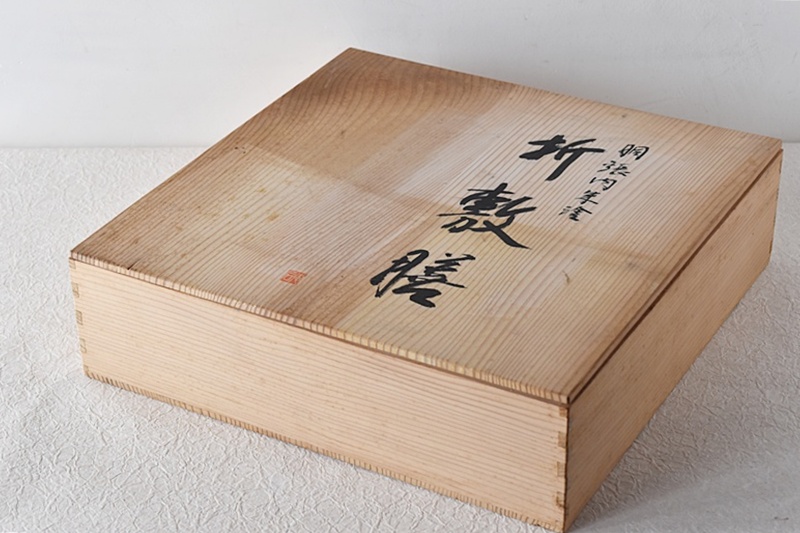 胴張内朱塗
折敷膳